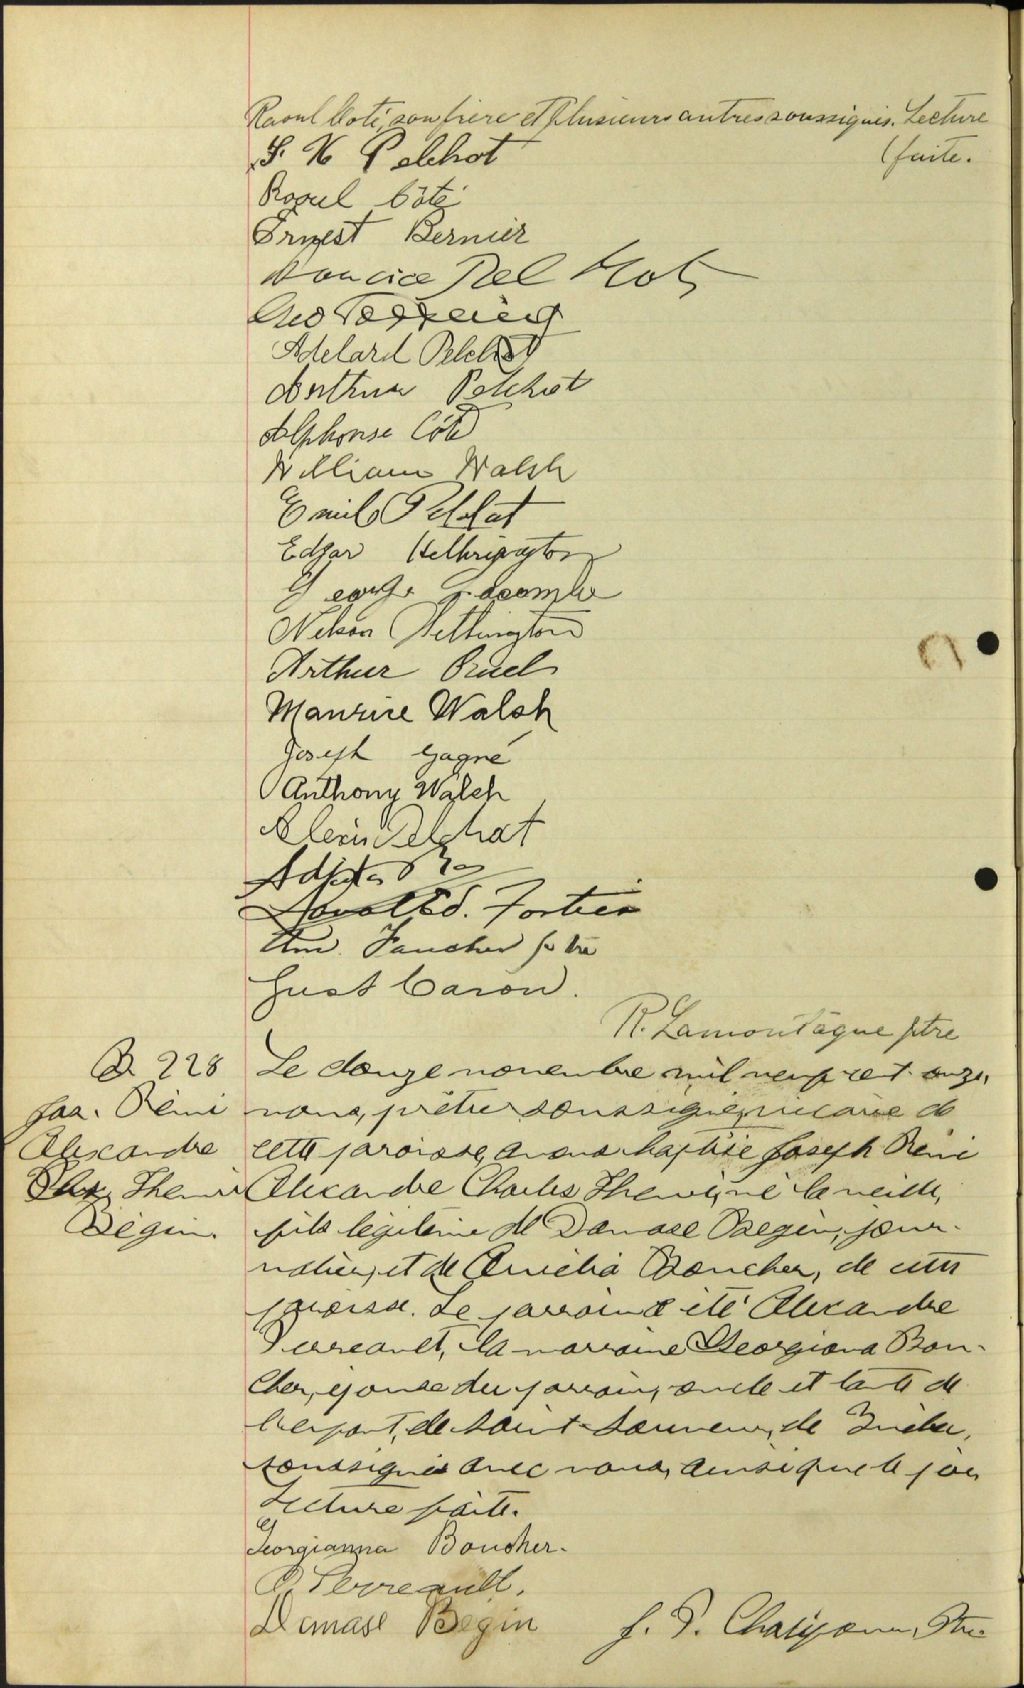 Raoul Coté, son frère et plusieurs autres soussignés. Lecture
(faite.
S. X Pelchat
Raoul Côté
Ernest Bernier
Geo
Adelard Pelchat
Arthur Pelchat
Alphonse Côté
William Walsh
Emile Pelchat
Edgar Hethrington
George Lacombe
Nelson Hethington
Arthur Bruel
Maurice Walsh
Joseph Gagné
Anthony Walsh
Alexis Pelchat
Ed. Fortier
Faucher ptre
Gust Caron.
R. Lamontagne ptre
B. 228
Jos. Rémi
Alexandre
Chs. Themi
Bégin.
Le douze novembre mil neuf cent onze,
nous, prêtre soussigné, vicaire de
cette paroisse, avons baptisé Joseph Rémi
Alexandre Charles Themi, né la veille,
fils légitime de Damase Bégin, jour-
nalier, et de Amélia Boucher, de cette
paroisse. Le parrain a été Alexandre
Perreault, la marraine Georgiana Bou-
cher, épouse du parrain, oncle et tante de
l'enfant, de Saint-Sauveur, de Québec,
soussignés avec nous, ainsi que le père
Lecture faite.
Georgianna Boucher.
A. Perreault.
Damase Begin
J. P. Ptre